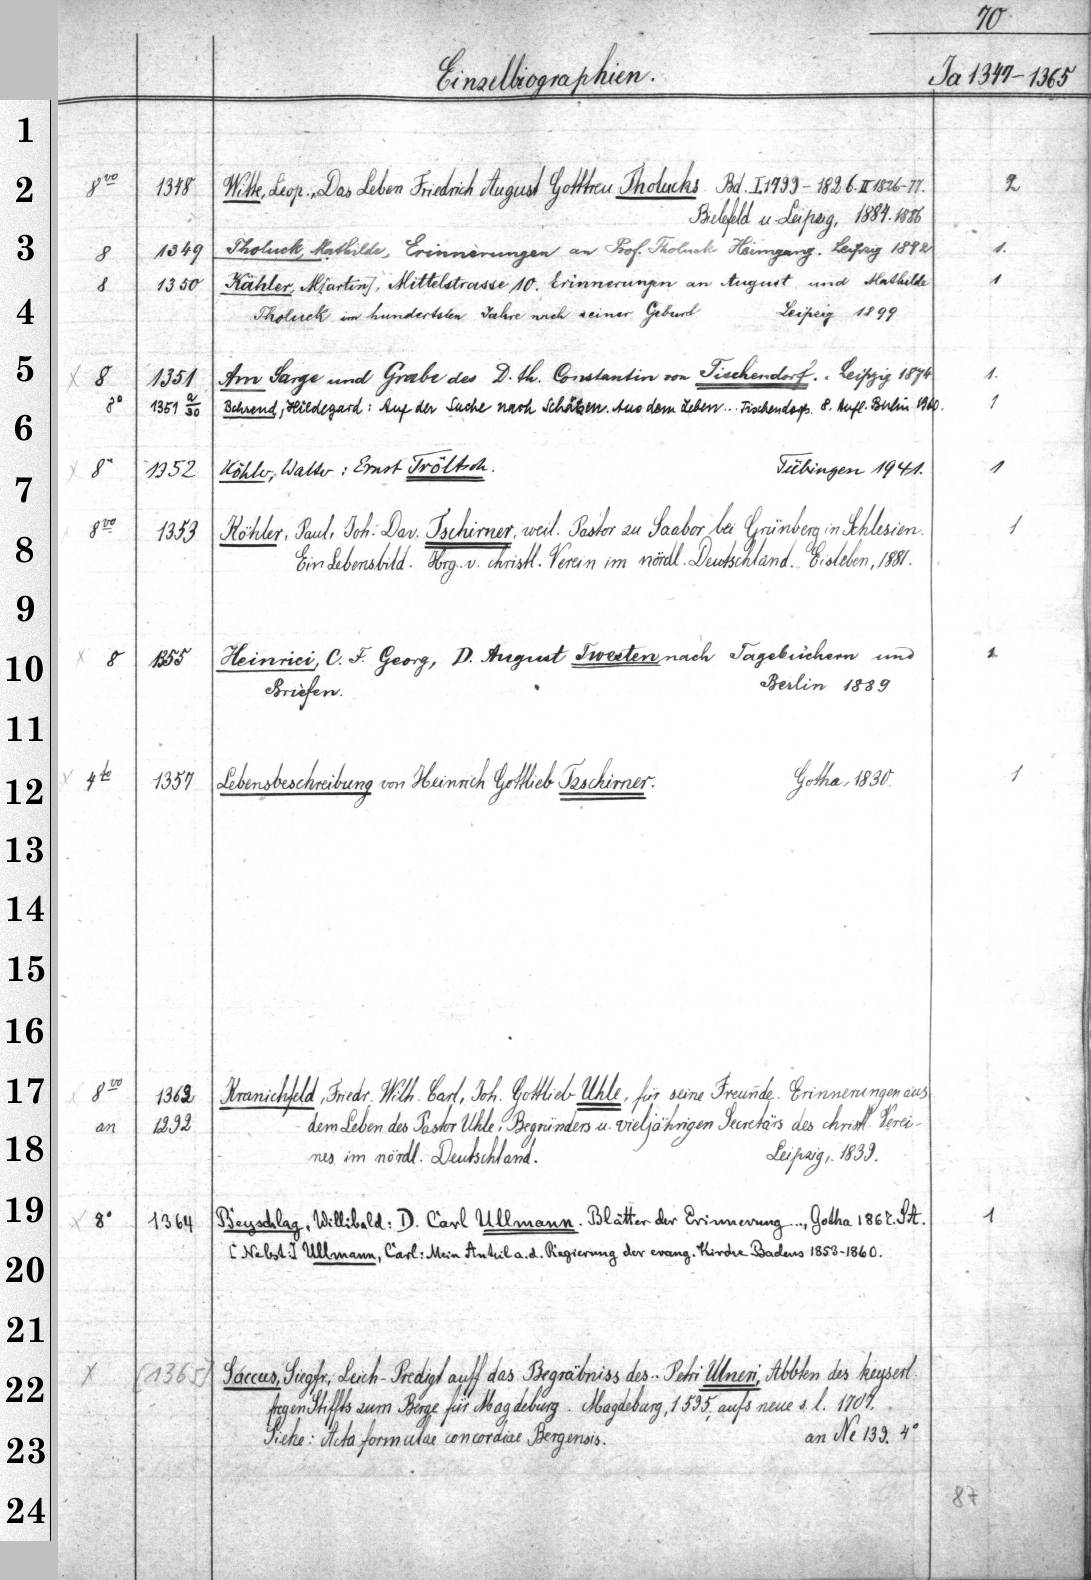 70
Einzelbiographien. Ja 1347-1365
1
2 8vo 1348 Witte, Leop., Das Leben Friedrich August Gotttreu Tholucks. Bd. I. 1799-1826. II 1826-77. 2
Bielefeld u. Leipzig, 1884. 1886
3 8 1349 Tholuck, Mathilde, Erinnerungen an Prof. Tholuck Heimgang. Leipzig 1892 1.
8 1350 Kähler, M[artin], Mittelstrasse 10. Erinnerungen an August und Mathilde 1
4 Tholuck im hundertsten Jahre nach seiner Geburt Leipzig 1899
5 X 8 1351 Am Sarge und Grabe des D. th. Constantin von Tischendorf. Leipzig 1874 1.
8° 1351 a/30 Behrend, Hildegard: Auf der Suche nach Schätzen. Aus dem Leben... Tischendorfs. 8. Aufl. Berlin 1960. 1
6
X 8° 1352 Köhler, Walter: Ernst Tröltsch. Tübingen 1941. 1
7
8vo 1353 Köhler, Paul, Joh. Dav. Tschirner, weil. Pastor zu Saabor bei Grünberg in Schlesien. 1
8 Ein Lebensbild. Hrg. v. christl. Verein im nördl. Deutschland. Eisleben, 1881.
9
10 X 8 1355 Heinrici, C. F. Georg, D. August Twesten nach Tagebüchern und 1
Briefen. Berlin 1889
11
12 X 4to 1357 Lebensbeschreibung von Heinrich Gottlieb Tzschirner. Gotha, 1830. 1
13
14
15
16
17 X 8vo 1362 Kranichfeld, Friedr. Wilh. Carl, Joh. Gottlieb Uhle, für seine Freunde. Erinnerungen aus
an 1292 dem Leben des Pastor Uhle, Begründers u. vieljährigen Secretärs des christl. Verei-
18 nes im nördl. Deutschland. Leipzig, 1839.
19 X 8° 1364 Beyschlag, Willibald: D. Carl Ullmann. Blätter der Erinnerung..., Gotha 1867. SA. 1
20 [Nebst:] Ullmann, Carl: Mein Anteil a. d. Regierung der evang. Kirche Badens 1853-1860.
21
22 X (1365) Saccus, Siegfr., Leich-Predigt auff das Begräbniss des.. Petri Ulneri, Abbten des keyserl.
fregen Stiffts zum Berge für Magdeburg. Magdeburg, 1595, aufs neue s. l. 1707.
23 Siehe: Acta formulae concordiae Bergensis. an Ne 139. 4°
24
87